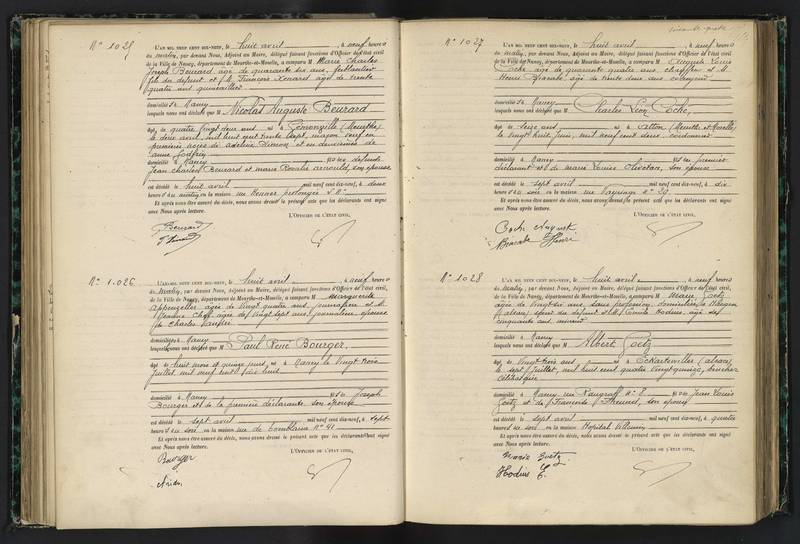 N° 1025
L'AN MIL NEUF CENT DIX-NEUF, le huit avril, à neuf heures
du matin, par devant Nous, Adjoint au Maire, délégué faisant fonctions d'Officier de l'état civil
de la Ville de Nancy, département de Meurthe-et-Moselle, a comparu M Marie Charles
Joseph Beurard âgé de quarante six ans, ferblantier
fils du defunt et M François Renard âgé de trente
quatre ans quincaillier
domiciliés à Nancy
lesquels nous ont déclaré que M Nicolas Auguste Beurard
âgé de quatre vingt deux ans né à (Meurthe)
deux avril mil huit cent trente sept, maçon veuf en
premières noces de Adeline Simon et en deuxièmes de
Anne Godfrin
domicilié à Nancy fils de défunts
Jean Charles Beurard et Marie Rosalie Arnould, son épouse
est décédé le huit avril mil neuf cent dix-neuf, à deux
heures du matin en la maison rue prolongée
Et après nous être assuré du décès, nous avons dressé le présent acte que les déclarants ont signé
avec Nous après lecture.
L'OFFICIER DE L'ÉTAT CIVIL,
Beurard
N° 1.026
L'AN MIL NEUF CENT DIX-NEUF, le huit avril, à neuf heures
du matin, par devant Nous, Adjoint au Maire, délégué faisant fonctions d'Officier de l'état civil
de la Ville de Nancy, département de Meurthe-et-Moselle, a comparu M Marguerite
âgée de vingt quatre ans, journalière et M
Jeanne âgée de vingt sept ans, journalière, épouse
de Charles
domiciliés à Nancy
lesquels nous ont déclaré que M Paul René Bourger,
âgé de huit mois et quinze jours né à Nancy le vingt trois
juillet, mil neuf cent dix huit
domicilié à Nancy fils de Joseph
Bourger et de la première déclarante, son épouse
est décédé le sept avril mil neuf cent dix-neuf, à sept
heures du soir en la maison rue de Tomblaine N° 41
Et après nous être assuré du décès, nous avons dressé le présent acte que les déclarants ont signé
avec Nous après lecture.
L'OFFICIER DE L'ÉTAT CIVIL,
Bourger
N° 1027
L'AN MIL NEUF CENT DIX-NEUF, le huit avril, à neuf heures
du matin, par devant Nous, Adjoint au Maire, délégué faisant fonctions d'Officier de l'état civil
de la Ville de Nancy, département de Meurthe-et-Moselle, a comparu M Auguste Louis
Coche âgé de quarante quatre ans, chauffeur et M
Henri âgé de trente deux ans
domiciliés à Nancy
lesquels nous ont déclaré que M Charles Léon Coche,
âgé de seize ans né à Atton (Meurthe et Moselle)
le vingt huit juin, mil neuf cent deux, cordonnier
domicilié à Nancy fils du premier
déclarant et de Marie Louise son épouse
est décédé le sept avril mil neuf cent dix-neuf, à dix
heures du soir en la maison rue N° 29
Et après nous être assuré du décès, nous avons dressé le présent acte que les déclarants ont signé
avec Nous après lecture.
L'OFFICIER DE L'ÉTAT CIVIL,
Coche August
Henri
N° 1028
L'AN MIL NEUF CENT DIX-NEUF, le huit avril, à neuf heures
du matin, par devant Nous, Adjoint au Maire, délégué faisant fonctions d'Officier de l'état civil
de la Ville de Nancy, département de Meurthe-et-Moselle, a comparu M Marie Goetz
âgée de vingt six ans, sans profession, domiciliée à
(Alsace) soeur du defunt et M Emile Hodius, âgé de
cinquante ans
domicilié à Nancy
lesquels nous ont déclaré que M Albert Goetz
âgé de vingt trois ans né à Eckartswiller (Alsace)
le sept juillet, mil huit cent quatre vingt quinze, boucher
célibataire
domicilié à Nancy rue N° 8 fils de Jean Louis
Goetz et de Françoise son épouse
est décédé le sept avril mil neuf cent dix-neuf, à quatre
heures du soir en la maison Hopital Villemin
Et après nous être assuré du décès, nous avons dressé le présent acte que les déclarants ont signé
avec Nous après lecture.
L'OFFICIER DE L'ÉTAT CIVIL,
Marie Goetz
Hodius E.